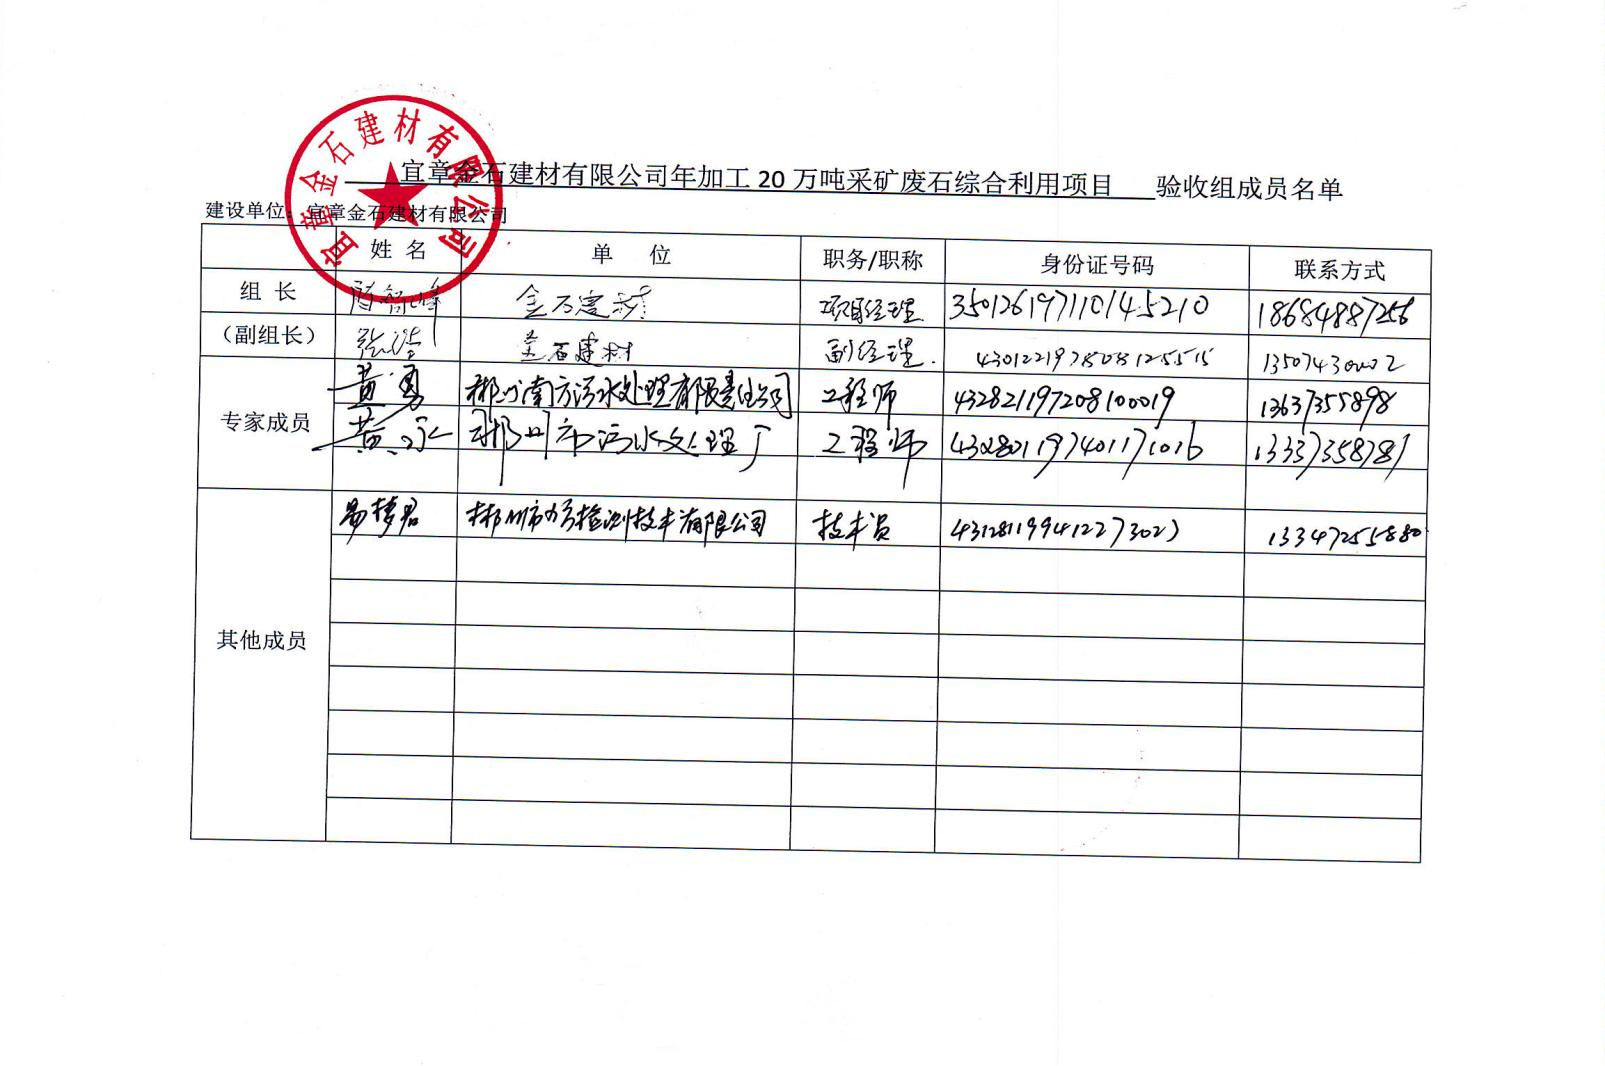 宜章金石建材有限公司
宜章金石建材有限公司年加工20万吨采矿废石综合利用项目 验收组成员名单
建设单位：宜章金石建材有限公司
姓 名 单 位 职务/职称 身份证号码 联系方式
组 长 金石建材 项目经理 350126197110145210 18684887256
（副组长） 张浩 金石建材 副经理
专家成员
黄勇 郴州南方污水处理有限责任公司 工程师 432821197208100019 13637355898
黄永 郴州市污水处理厂 工程师 432801197401171016 13337358781
其他成员
易梦君 郴州市 检测技术有限公司 技术员 431281199412273023 13347255880